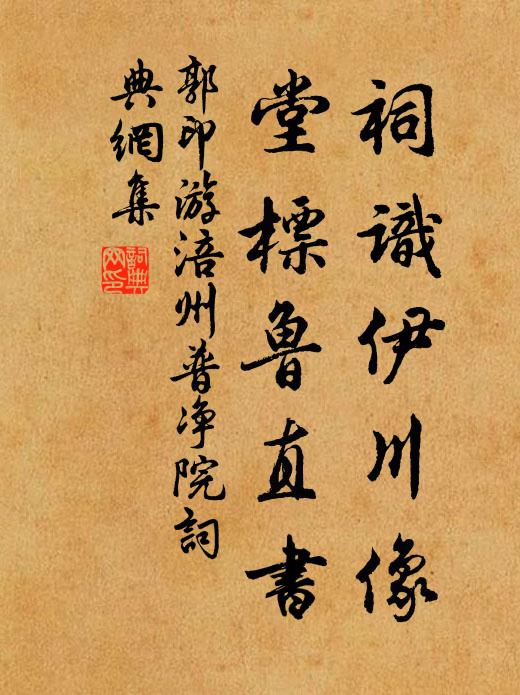 祠識伊川像
堂標魯直書
郭印游涪州普净院詞
典網集
詞典
网印